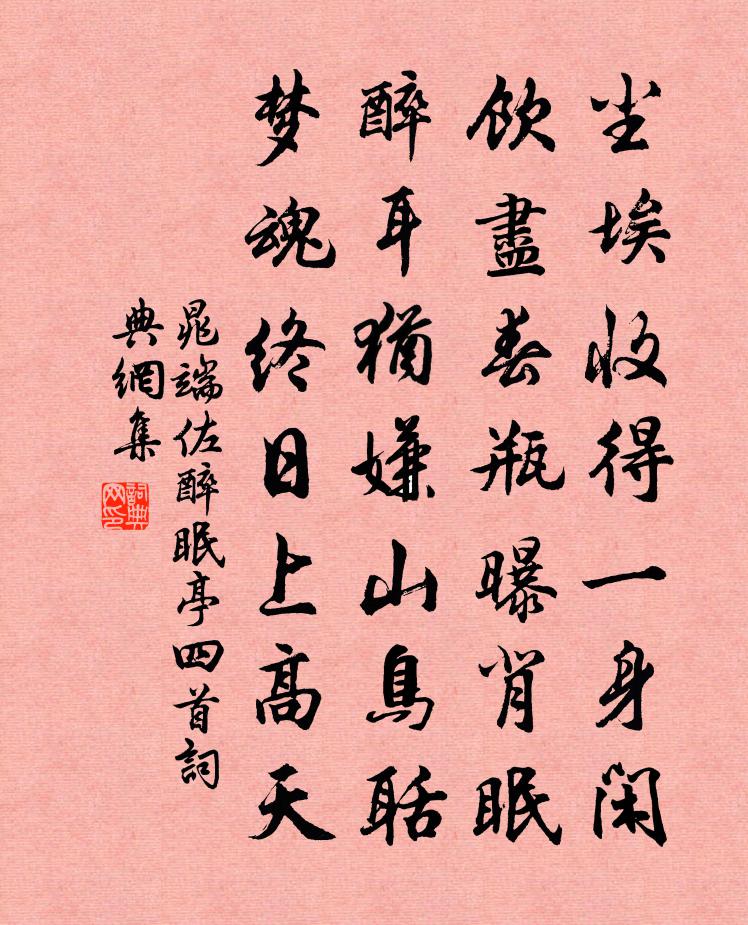 尘埃收得一身闲
飲盡春瓶曝背眠
醉耳猶嫌山鳥聒
梦魂终日上高天
晁端佐醉眠亭四首詞
典網集
詞典
网印